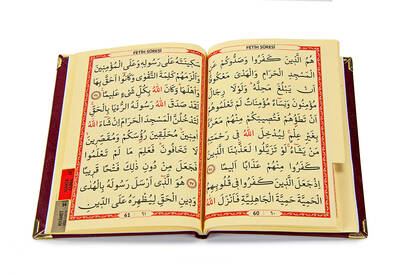 FETİH SÛRESİ
هُمُ الَّذِينَ كَفَرُوا وَصَدُّوكُمْ عَنِ
الْمَسْجِدِ الْحَرَامِ وَالْهَدْيَ مَعْكُوفًا
اَنْ يَبْلُغَ مَحِلَّهُ وَلَوْلَا رِجَالٌ
مُؤْمِنُونَ وَنِسَاءٌ مُؤْمِنَاتٌ لَمْ تَعْلَمُوهُمْ
اَنْ تَطَؤُهُمْ فَتُصِيبَكُمْ مِنْهُمْ مَعَرَّةٌ
بِغَيْرِ عِلْمٍ لِيُدْخِلَ اللّٰهُ فِي رَحْمَتِهِ
مَنْ يَشَاءُ لَوْ تَزَيَّلُوا لَعَذَّبْنَا الَّذِينَ
كَفَرُوا مِنْهُمْ عَذَابًا اَلِيمًا ﴿٢٥﴾
اِذْ جَعَلَ الَّذِينَ كَفَرُوا فِي قُلُوبِهِمُ
الْحَمِيَّةَ حَمِيَّةَ الْجَاهِلِيَّةِ فَاَنْزَلَ اللّٰهُ
60 ٦٠
FETİH SÛRESİ
سَكِينَتَهُ عَلٰى رَسُولِهِ وَعَلَى الْمُؤْمِنِينَ
وَاَلْزَمَهُمْ كَلِمَةَ التَّقْوٰى وَكَانُوا اَحَقَّ بِهَا
وَاَهْلَهَا وَكَانَ اللّٰهُ بِكُلِّ شَيْءٍ عَلِيمًا ﴿٢٦﴾
لَقَدْ صَدَقَ اللّٰهُ رَسُولَهُ الرُّءْيَا بِالْحَقِّ
لَتَدْخُلُنَّ الْمَسْجِدَ الْحَرَامَ اِنْ شَاءَ اللّٰهُ
اٰمِنِينَ مُحَلِّقِينَ رُؤُسَكُمْ وَمُقَصِّرِينَ
لَا تَخَافُونَ فَعَلِمَ مَا لَمْ تَعْلَمُوا
فَجَعَلَ مِنْ دُونِ ذٰلِكَ فَتْحًا قَرِيبًا
﴿٢٧﴾ هُوَ الَّذِي اَرْسَلَ رَسُولَهُ بِالْهُدٰى
وَدِينِ الْحَقِّ لِيُظْهِرَهُ عَلَى الدِّينِ
61 ٦١